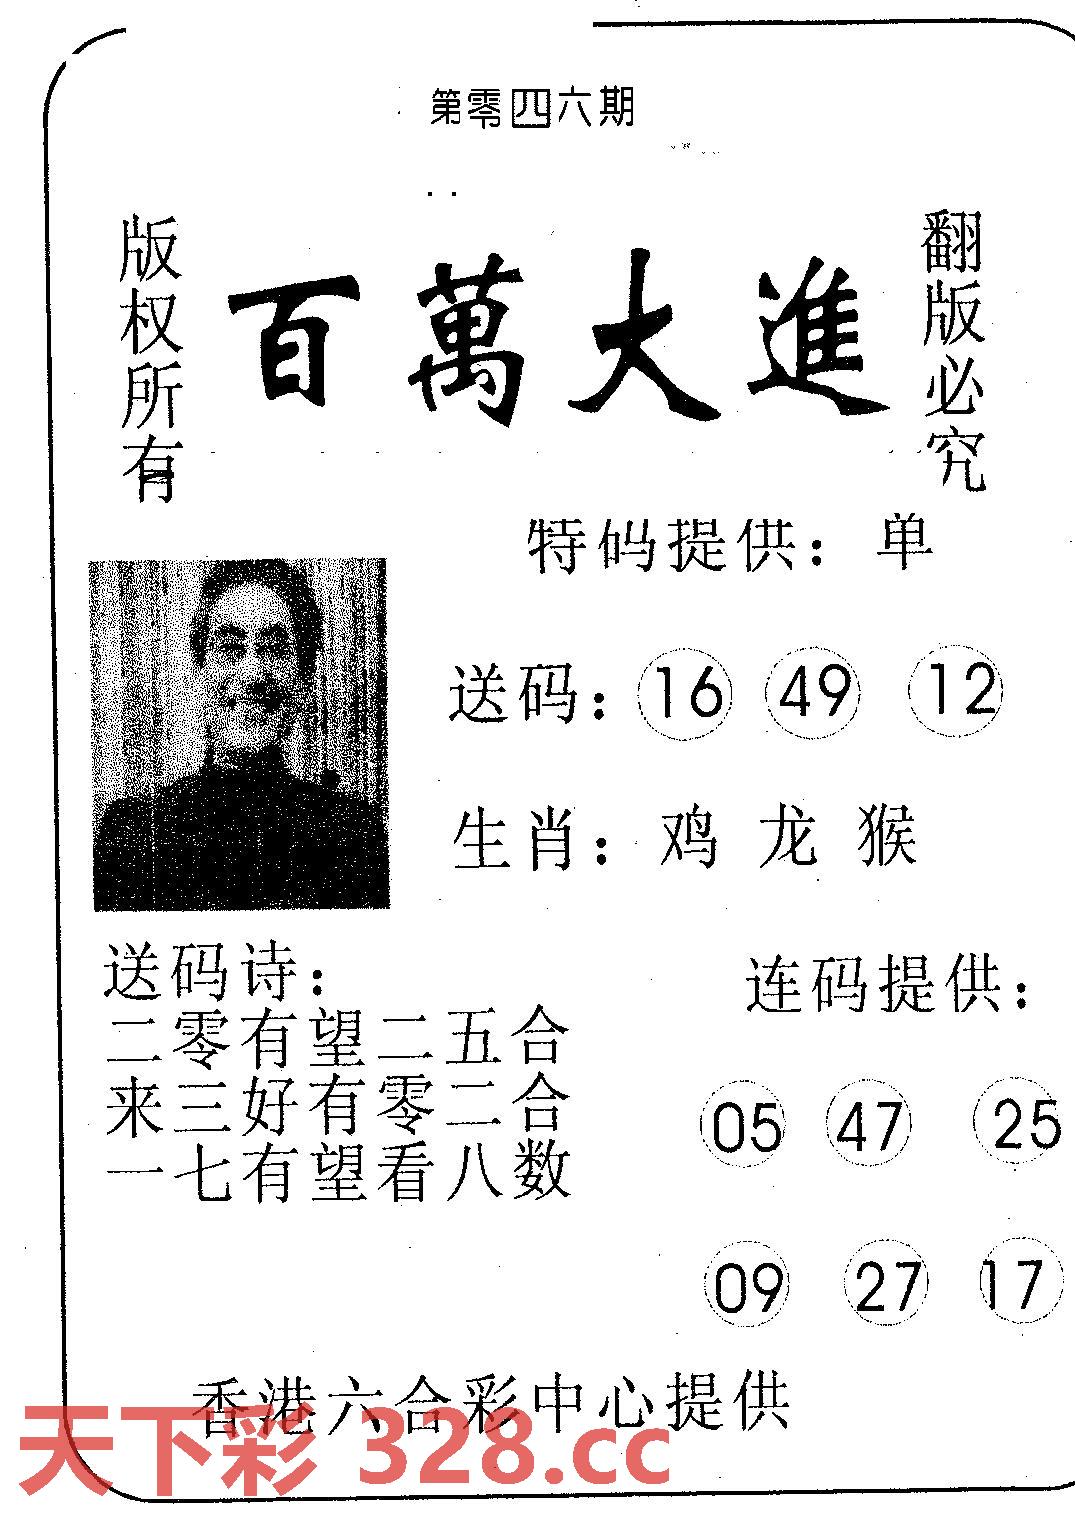 第零四六期
版权所有
百萬大進
翻版必究
特码提供：单
送码：16 49 12
生肖：鸡 龙 猴
送码诗：
二零有望二五合
来三好有零二合
一七有望看八数
连码提供：
05 47 25
09 27 17
香港六合彩中心提供
天下彩 328.cc